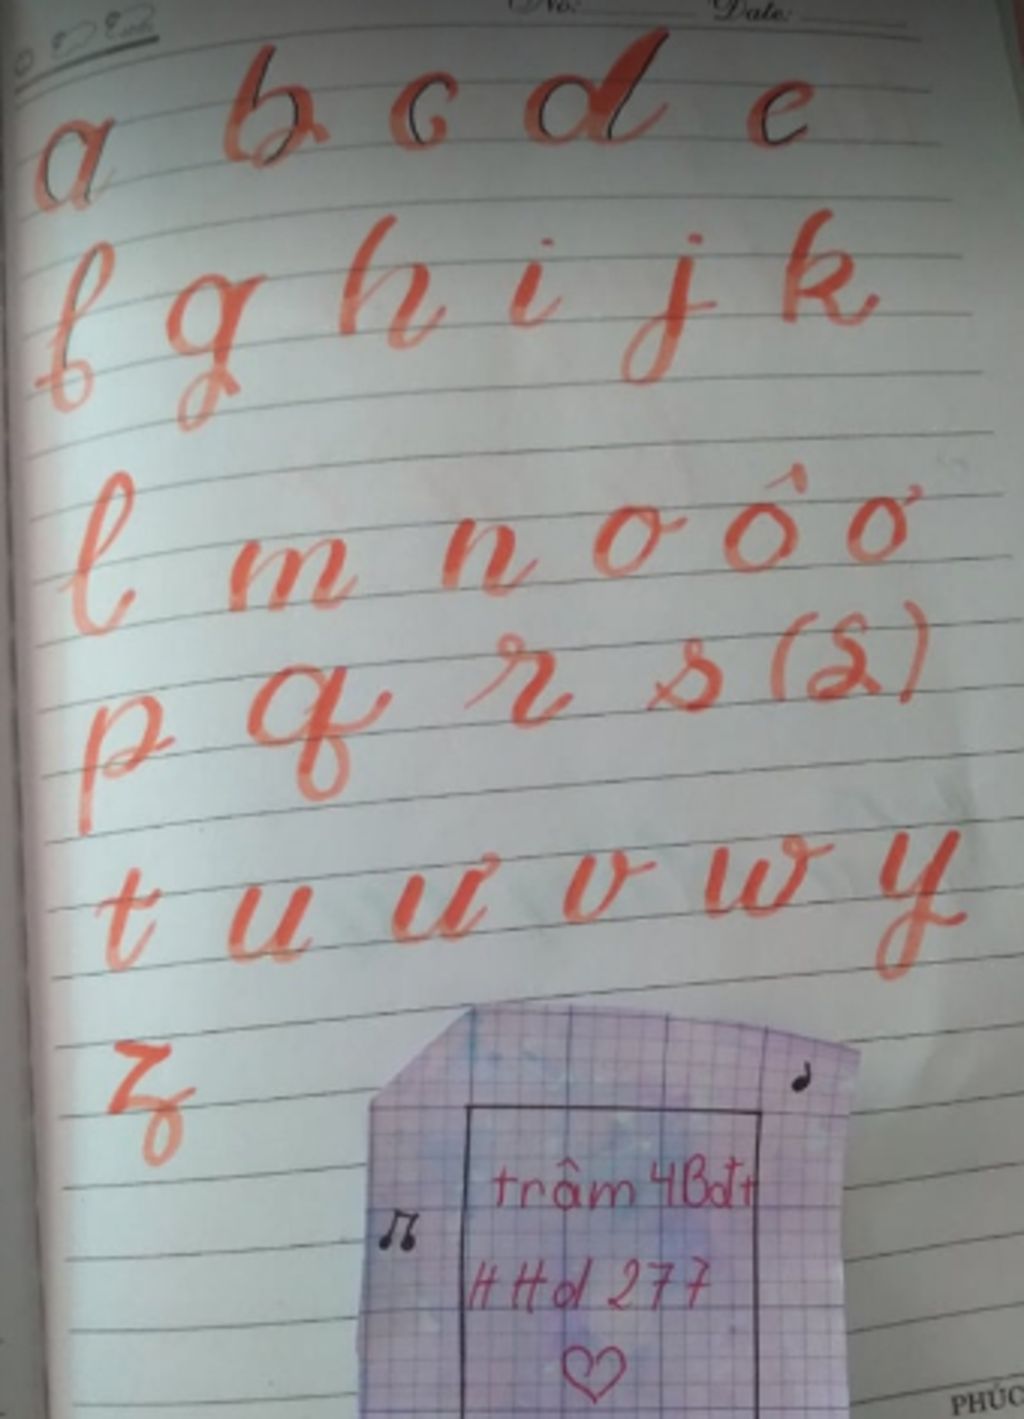 No: Date:
a b c d e
f g h i j k
l m n o ô ơ
p q r s (s)
t u ư v w y
z
trâm 4Bđt
HHd 277
PHÚC